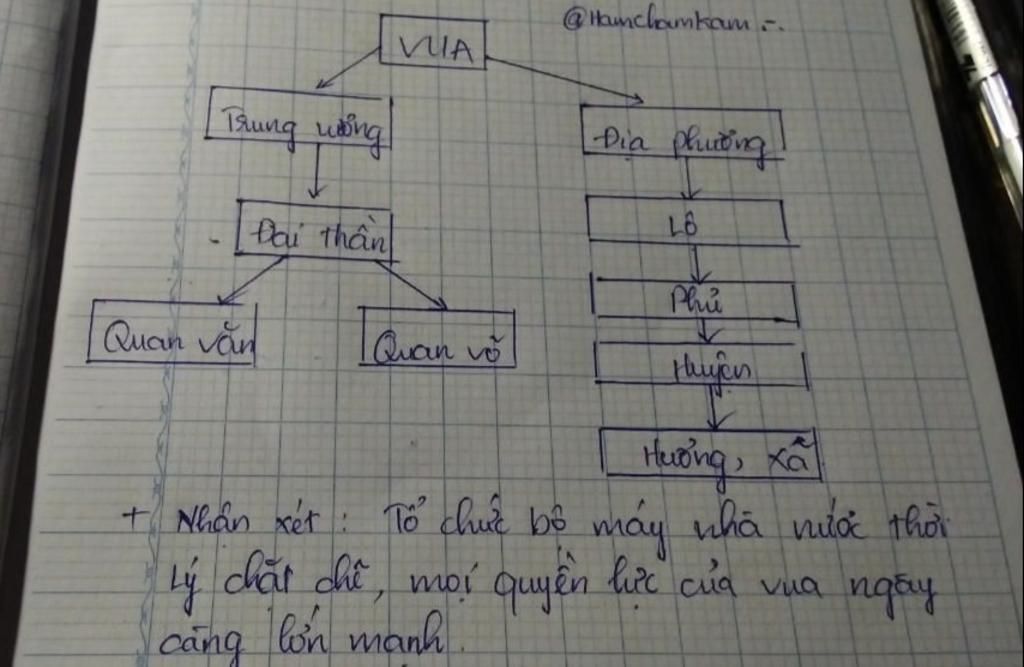 @Hamchamkam
VUA
Trung ương
Địa phương
Đại thần
Lộ
Phủ
Quan văn
Quan võ
Huyện
Hương, xã
+ Nhận xét: Tổ chức bộ máy nhà nước thời
Lý chặt chẽ, mọi quyền lực của vua ngày
càng lớn mạnh.